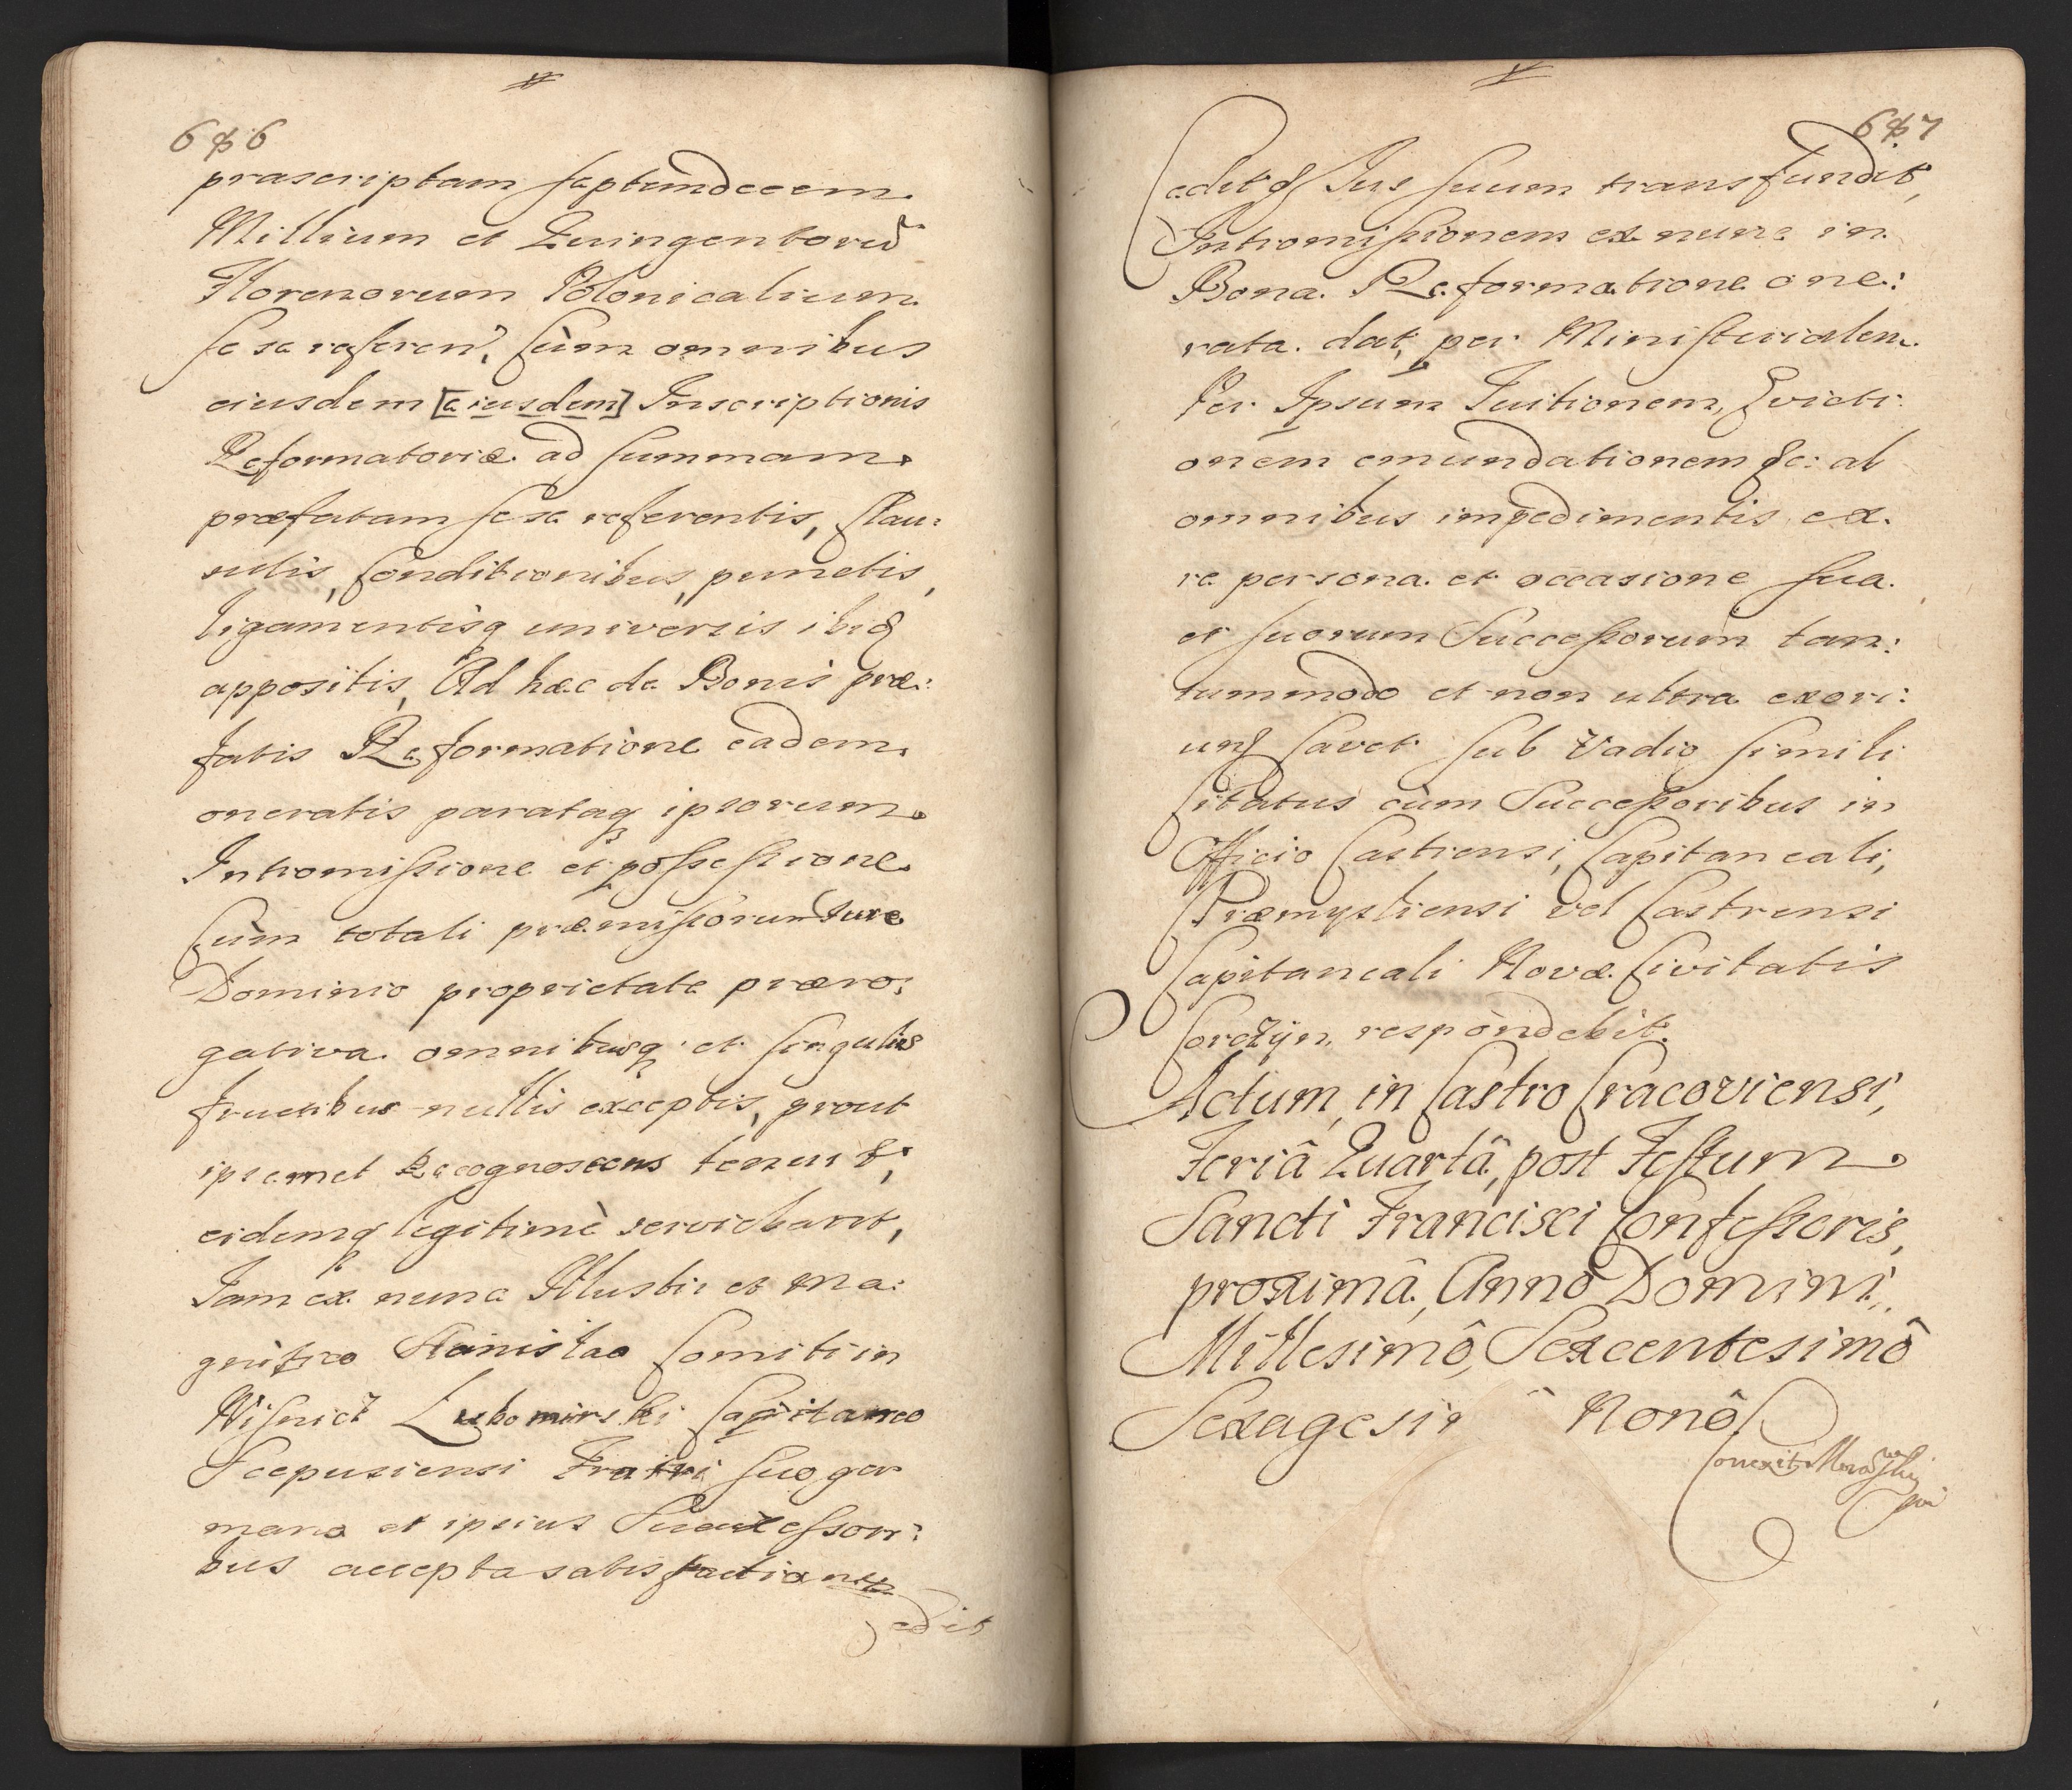 686
præscriptam septemdecem
Millium et Quingentorũ
Florenorum Polonicalium
sese referen͂, Cùm omnibus
eiusdem [eiusdem] Inscriptionis
Reformatoriæ ad summam
præfatam sese referentis, Clau:
sulis, Conditionibus, punctis,
ligamentisq universis ibiq
appositis, Ad hæc de Bonis præ:
fatis Reformatione eadem
oneratis parataq ipsorum
Intromissione et possessione
Cùm totali præmissorum Iure
Dominio proprietate præro:
gativa omnibusq et singulis
fructibus nullis exceptis, prout
ipsemet Recognoscens tenuit,
eidemq legitimè serviebant,
Iam ex nunc Illustri et Ma:
gnifico Stanislao Comiti in
Wisnicz Lubomirski Capitaneo
Scepusiensi Fratri suo ger
mano et ipsius Successori:
bus accepta satisfactione
cedit
687
Cedit & Ius suum transfundit,
Intromissionem ex nunc in
Bona Reformatione one:
rata dat, per Ministerialem
Per Ipsum Tuitionem, Evicti:
onem emundationem &c: ab
omnibus impedimentis ex
re persona et occasione sua
et suorum Successorum tan:
tummodo et non ultra exori:
un͂ Cavet sub Vadio simili
Citatus cùm Successoribus in
Officio Castrensi, Capitaneali,
Præmysliensi vel Castrensi
Capitaneali Novæ Civitatis
Corczÿn respondebit.
Actum in Castro Cracoviensi,
Feriâ Quartâ, post Festum
Sancti Francisci Confessoris,
proximâ, Anno Domini,
Millesimô, Sexcentesimô
Sexagesi Nonô